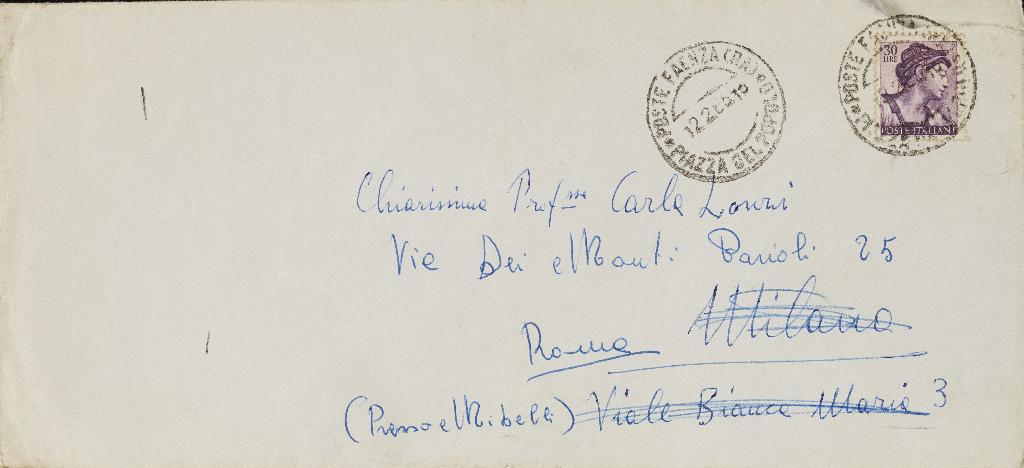 POSTE FAENZA (RA) * PIAZZA DEL POPOLO *
12.2.
30 LIRE
POSTE ITALIANE
Chiarissima Prof.ssa Carla Lonzi
Via Dei Monti Parioli 25
Milano
Roma
(Presso Mibelli) Viale Bianca Maria 3